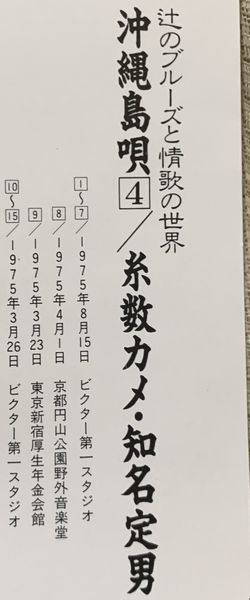 辻のブルーズと情歌の世界
沖縄島唄4／糸数カメ・知名定男
1〜7／1975年8月15日 ビクター第一スタジオ
8／1975年4月1日 京都円山公園野外音楽堂
9／1975年3月23日 東京新宿厚生年金会館
10〜15／1975年3月26日 ビクター第一スタジオ